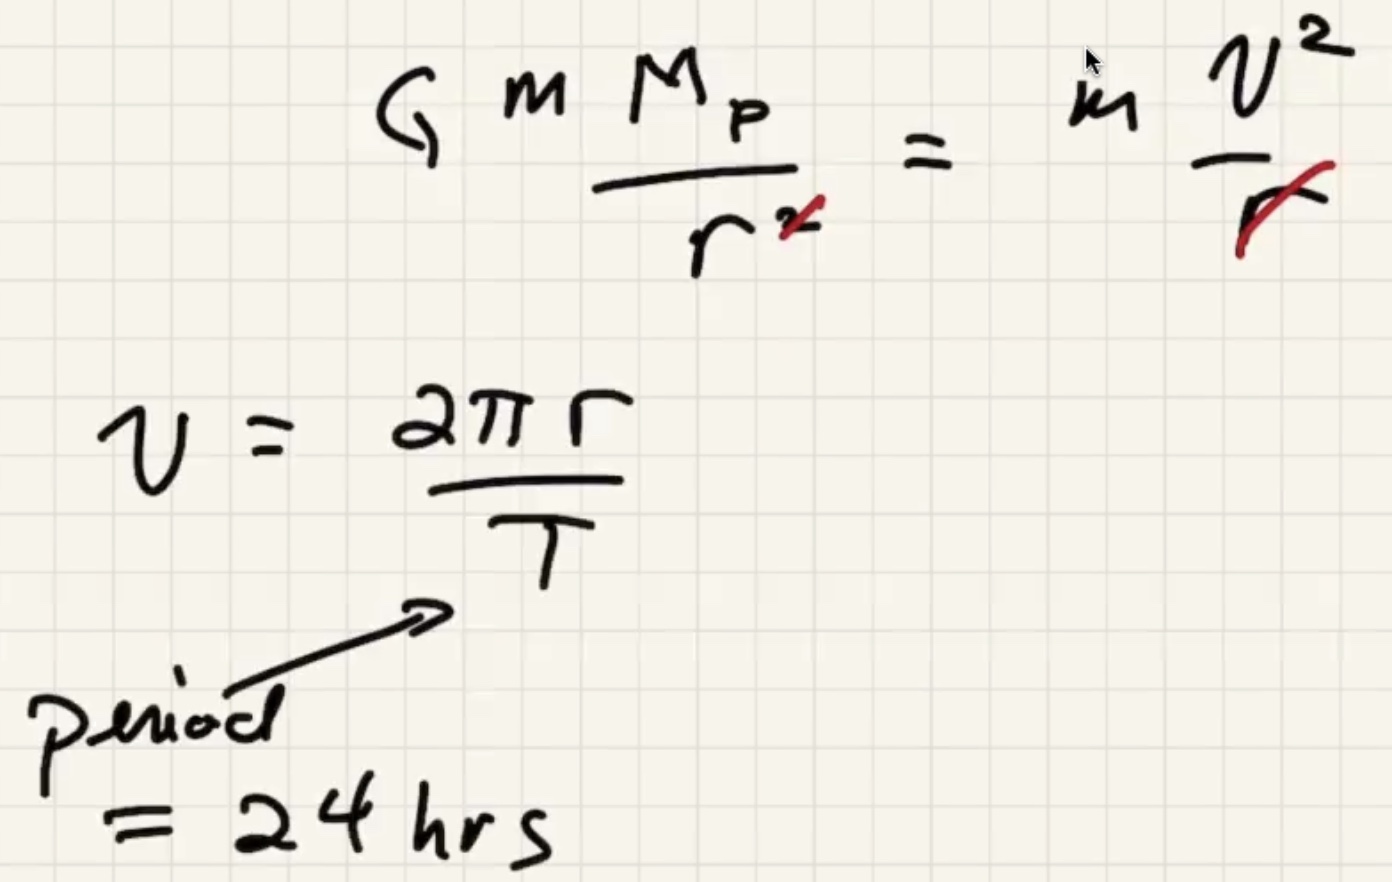 G m M_p / r² = m v² / r
v = 2πr / T
period
= 24 hrs